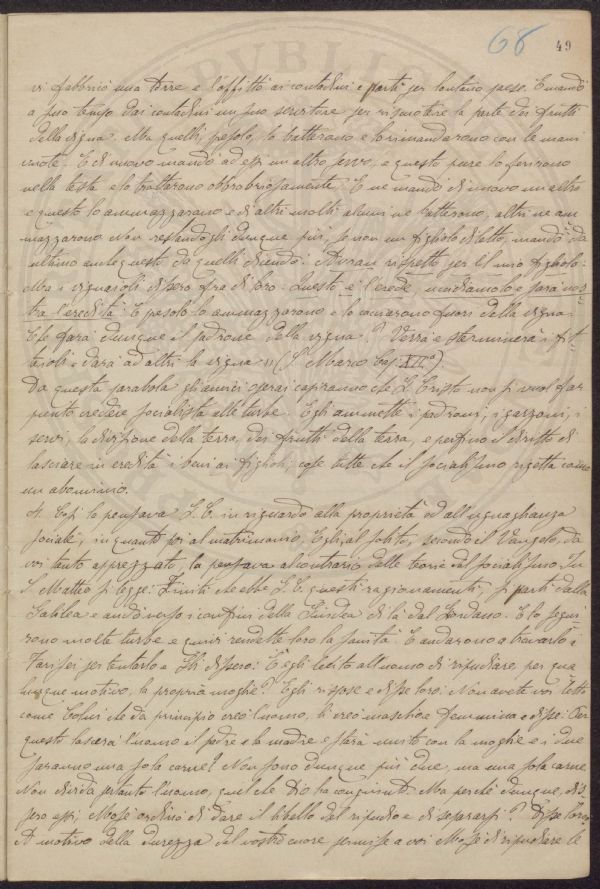 68 49
vi fabbricò una torre e l'affittò ai contadini e partì per lontano paese. E mandò
a suo tempo dai contadini un suo servitore, per riscuotere la parte dei frutti
della vigna. Ma quelli, presolo, lo batterono e lo rimandarono con le mani
vuote. E di nuovo mandò ad essi un altro servo, e questo pure lo ferirono
nella testa e lo trattarono obbrobriosamente. E ne mandò di nuovo un altro
e questo lo ammazzarono e di altri molti alcuni ne batterono, altri ne am
mazzarono. Non restandogli dunque più, se non un figliolo diletto, mandò da
ultimo anche questo da quelli dicendo: Avranno rispetto per il mio figliolo.
Ma i vignaioli dissero fra di loro: Questo è l'erede, uccidiamolo e sarà nos
tra l'eredità. E presolo lo ammazzarono e lo cacciarono fuori della vigna.
Che farà dunque il padrone della vigna? Verrà e sterminerà i fit
taioli e darà ad altri la vigna " (S. Marco Cap. XII°)
Da questa parabola gli amici operai capiranno che G. Cristo non si vuol far
punto credere socialista alle turbe. Egli ammette i padroni, i garzoni, i
servi, la divisione della terra, dei frutti della terra, e perfino il diritto di
lasciare in eredità i beni ai figlioli, cose tutte che il socialismo rigetta come
un abominio.
4. Così la pensava G. C. in riguardo alla proprietà od all'uguaglianza
sociale, in quanto poi al matrimonio, Egli, al solito, secondo il Vangelo, da
voi tanto apprezzato, la pensava al contrario delle teorie del socialismo. In
S. Matteo si legge: Finiti che ebbe G. C. questi ragionamenti, si partì dalla
Galilea e andò verso i confini della Giudea di là dal Giordano. E lo segui
rono molte turbe e quivi rendette loro la sanità. E andarono a trovarlo i
Farisei per tentarlo e Gli dissero: È egli lecito all'uomo di ripudiare per qua
lunque motivo, la propria moglie? Egli rispose e disse loro: Non avete voi letto
come Colui che da principio creò l'uomo, li creò maschio e femmina e disse: Per
questo lascerà l'uomo il padre e la madre e starà unito con la moglie e i due
saranno una sola carne? Non sono dunque più due, ma una sola carne.
Non divida pertanto l'uomo, quel che Dio ha congiunto. Ma perchè dunque, dis
sero essi, Mosè ordinò di dare il libello del ripudio e di separarsi? Disse loro:
A motivo della durezza del vostro cuore permise a voi Mosè di ripudiare le